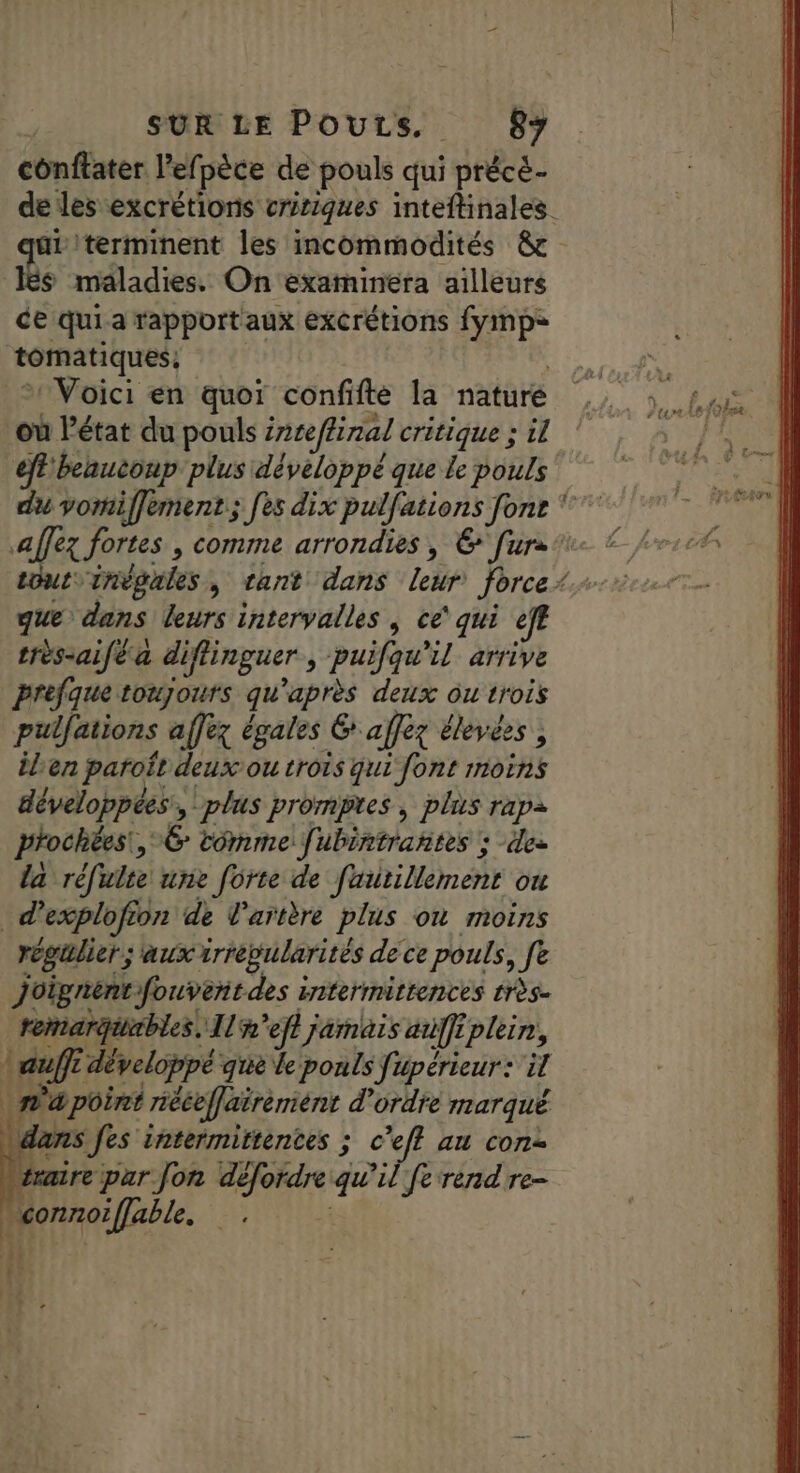 SUR LE POULS. 87
conſtater l'eſpèce de pouls qui précè-
de les excrétions critiques inteſtinales
qui terminent les incommodités &
les maladies. On examinera ailleurs
ce qui a rapport aux excrétions ſymp-
tomatiques.
Voici en quoi conſiſte la nature
ou l'état du pouls inteſtinal critique ; il
eſt beaucoup plus développé que le pouls
du vomiſſement ; ſes dix pulſations ſont
aſſez fortes , comme arrondies , & ſur-
tout inégales , tant dans leur force
que dans leurs intervalles , ce qui eſt
très-aiſé à diſtinguer , puiſqu'il arrive
preſque toujours qu'après deux ou trois
pulſations aſſez égales & aſſez élevées ,
il en paroît deux ou trois qui ſont moins
développées , plus promptes , plus rap-
prochées , & comme ſubintrantes ; de-
là réſulte une ſorte de ſautillement ou
d'exploſion de l'artère plus ou moins
régulier ; aux irrégularités de ce pouls, ſe
joignent ſouvent des intermittences très-
remarquables. Il n'eſt jamais auſſi plein,
auſſi développé que le pouls ſupérieur : il
n'a point néceſſairement d'ordre marqué
dans ſes intermittences ; c'eſt au con-
traire par ſon déſordre qu'il ſe rend re-
connoiſſable.